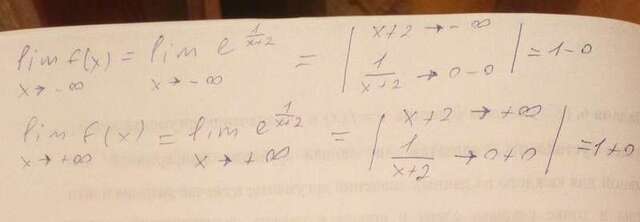 lim f(x) = lim e^(1/(x+2)) = | x+2 → -∞
x→ -∞ x→ -∞ 1/(x+2) → 0-0 | = 1-0
lim f(x) = lim e^(1/(x+2)) = | x+2 → +∞
x→ +∞ x→ +∞ 1/(x+2) → 0+0 | = 1+0